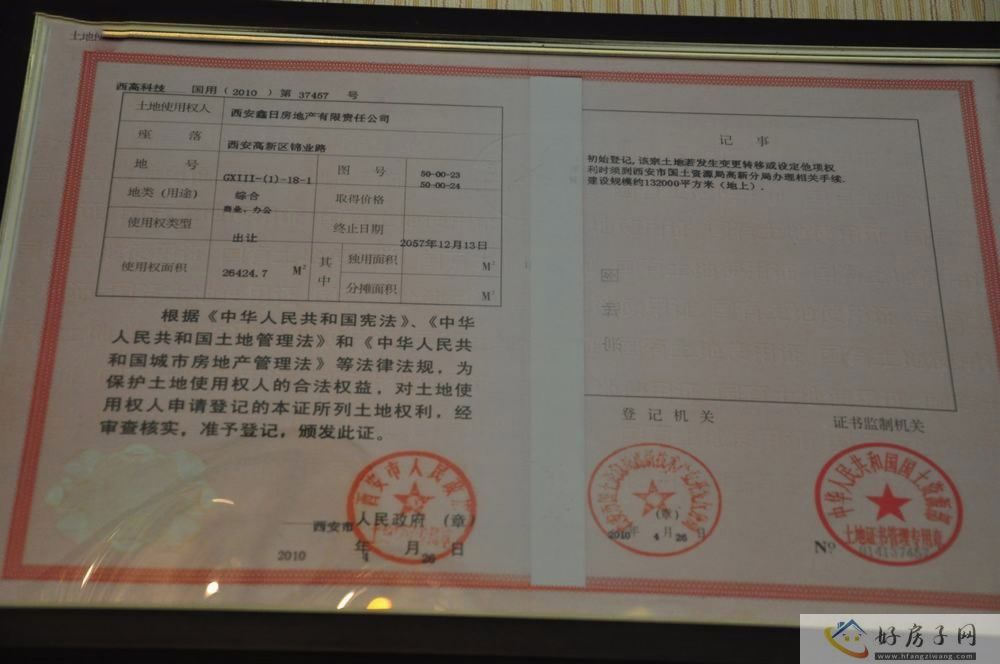 西高科技 国用（2010 ）第 37467 号
土地使用权人 西安鑫日房地产有限责任公司
座 落 西安高新区锦业路
地 号 GXIII-(1)-18-1 图 号 50-00-23
50-00-24
地类（用途） 综合 取得价格
商业、办公
使用权类型 出让 终止日期 2057年12月13日
使用权面积 26424.7 M² 其中 独用面积 M²
分摊面积 M²
根据《中华人民共和国宪法》、《中华
人民共和国土地管理法》和《中华人民共
和国城市房地产管理法》等法律法规，为
保护土地使用权人的合法权益，对土地使
用权人申请登记的本证所列土地权利，经
审查核实，准予登记，颁发此证。
西安市人民政府（章）
2010 年 4 月 26 日
记 事
初始登记，该宗土地若发生变更转移或设定他项权
利时须到西安市国土资源局高新分局办理相关手续.
建设规模约132000平方米（地上）.
登 记 机 关
（章）
2010 年 4 月 26 日
证书监制机关
中华人民共和国国土资源部
土地证书管理专用章
Nº
好房子网
www.hfangziwang.com